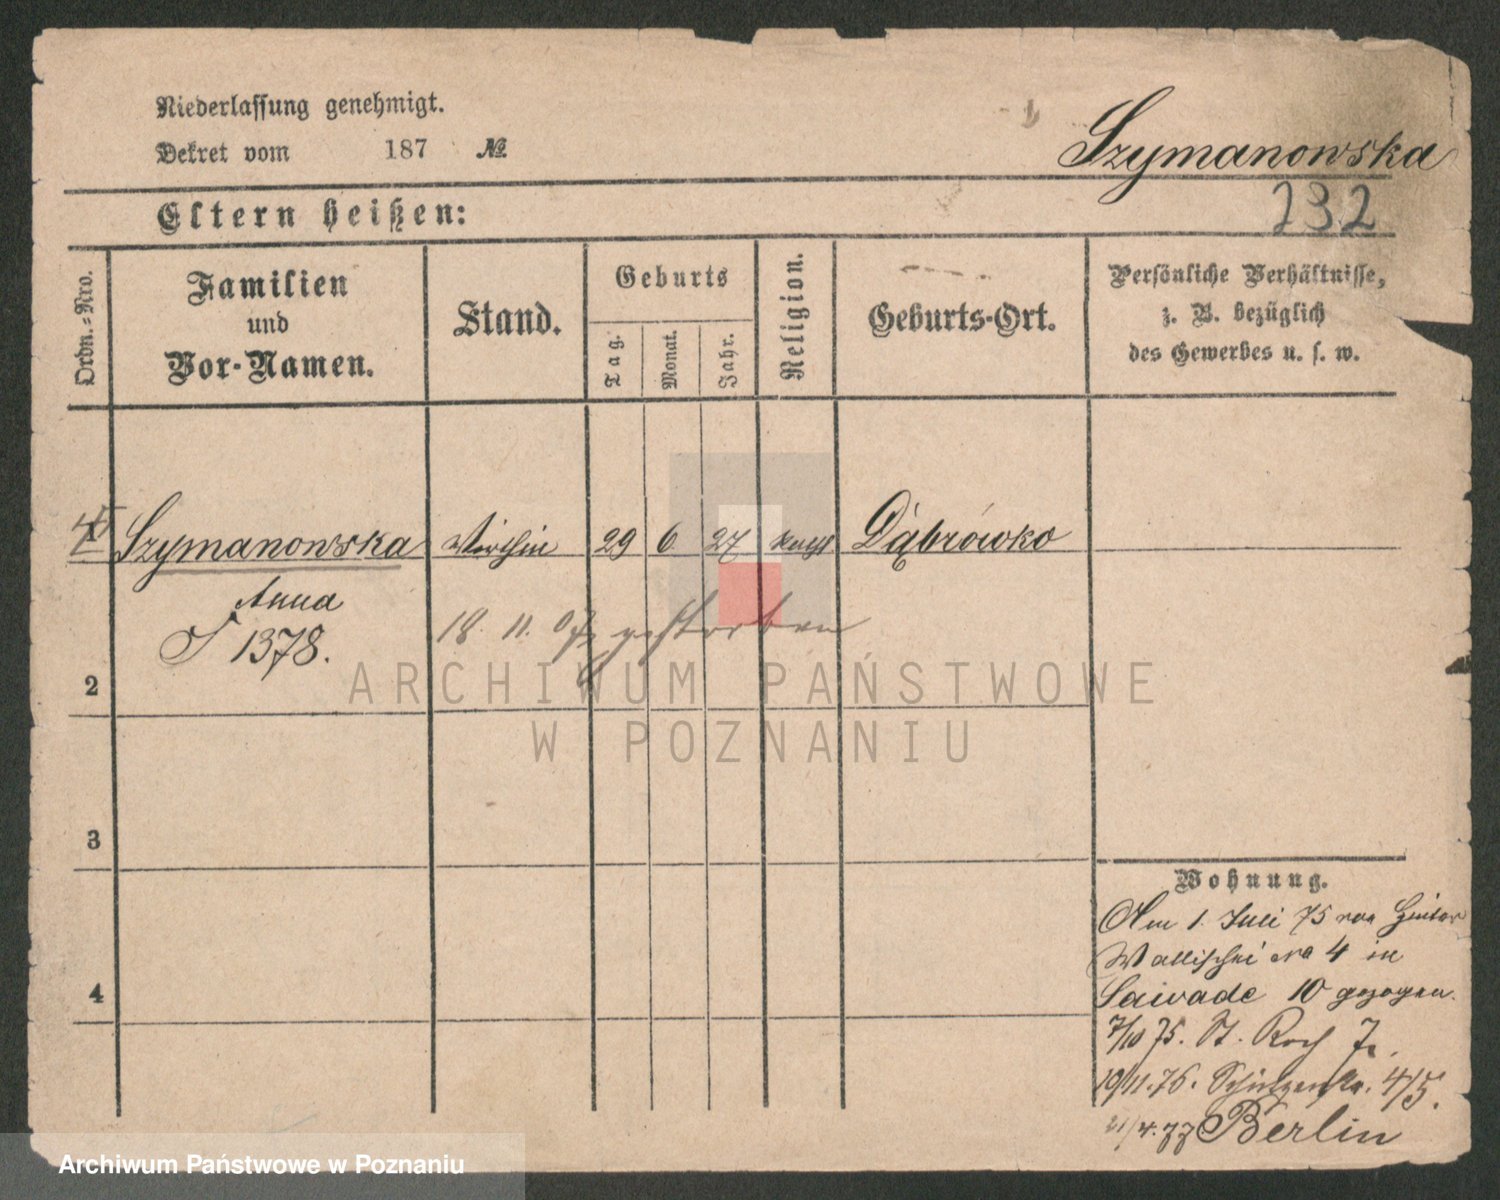 Niederlassung genehmigt.
Dekret vom 187 №
Szymanowska
232
Eltern heißen:
Ordn.-Nro.
Familien
und
Vor-Namen.
Stand.
Geburts
Tag.
Monat.
Jahr.
Religion.
Geburts-Ort.
Persönliche Verhältnisse,
z. B. bezüglich
des Gewerbes u. s. w.
Szymanowska Wirthin 29 6 27 Dąbrówko
Anna
1378.
18. 11. 07 gestorben
2
3
4
Wohnung.
Am 1. Juli 75 von Hinter
Wallischei No 4 in
Sawade 10 gezogen.
7/10 75. St. Roch 7.
19/11.76. Schützenstr. 4/5.
21/4.77 Berlin
ARCHIWUM PAŃSTWOWE
W POZNANIU
Archiwum Państwowe w Poznaniu